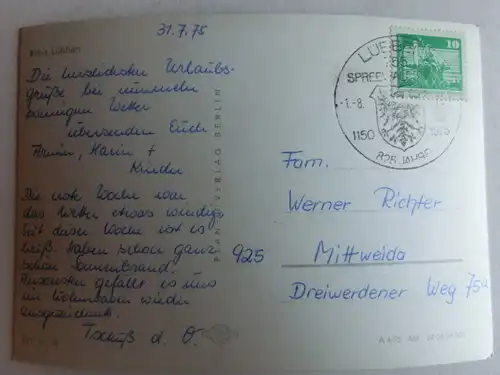 31.7.75
Kreis Lübben
Die herzlichsten Urlaubs-
grüße bei nunmehr
sonnigem Wetter
übersenden Euch
Armin, Karin +
Kinder
Die erste Woche war
das Wetter etwas windig
Seit dieser Woche ist es
heiß. Haben schon ganz
schön Sonnenbrand.
Ansonsten gefällt es uns
im Wohnwagen wieder
ausgezeichnet.
Tschüß d. O.
PLANET-VERLAG BERLIN
10
LÜBBEN
SPREEWALD
-1.-8.
1150 1975
825 JAHRE
Fam.
Werner Richter
925 Mittweida
Dreiwerdener Weg 75a